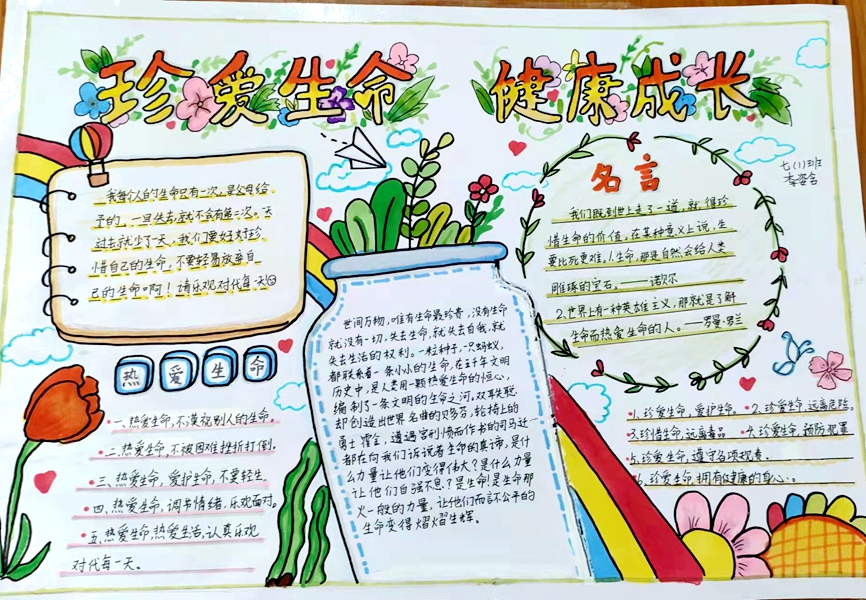 珍爱生命 健康成长
七(1)班
我每个人的生命只有一次,是父母给
予的,一旦失去,就不会有第二次。天
过去就少了一天,我们要好好珍
惜自己的生命,不要轻易放弃自
己的生命啊!请乐观对代每一天
热爱生命
一、热爱生命,不漠视别人的生命。
二、热爱生命,不被困难挫折打倒。
三、热爱生命,爱护生命,不要轻生。
四、热爱生命,调节情绪,乐观面对。
五、热爱生命,热爱生活,认真乐观
对代每一天。
世间万物,唯有生命最珍贵,没有生命
就没有一切,失去生命,就失去自我,就
失去生活的权利。一粒种子,一只蚂蚁,
都联系着一条小小的生命,在五千年文明
历史中,是人类用一颗热爱生命的恒心,
编制了一条文明的生命之河。双耳失聪
却创造出世界名曲的贝多芬,轮椅上的
勇士霍金,遭遇宫刑愤而作书的司马迁…
都在向我们诉说着生命的真谛,是什
么力量让他们变得伟大?是什么力量
让他们自强不息?是生命!是生命那
火一般的力量,让他们而认不公平的
生命变得熠熠生辉。
名言
我们既到世上走了一道,就得珍
惜生命的价值。在某种意义上说,生
要比死更难。人生命,那是自然会给人类
雕琢的宝石。——诺贝尔
2.世界上有一种英雄主义,那就是了解
生命而热爱生命的人。——罗曼·罗兰
1.珍爱生命,爱护生命。 2.珍爱生命,远离危险。
3.珍惜生命,远离毒品 4.珍爱生命,预防犯罪
5.珍爱生命,遵守各项规章。
6.珍爱生命,拥有健康的身心。